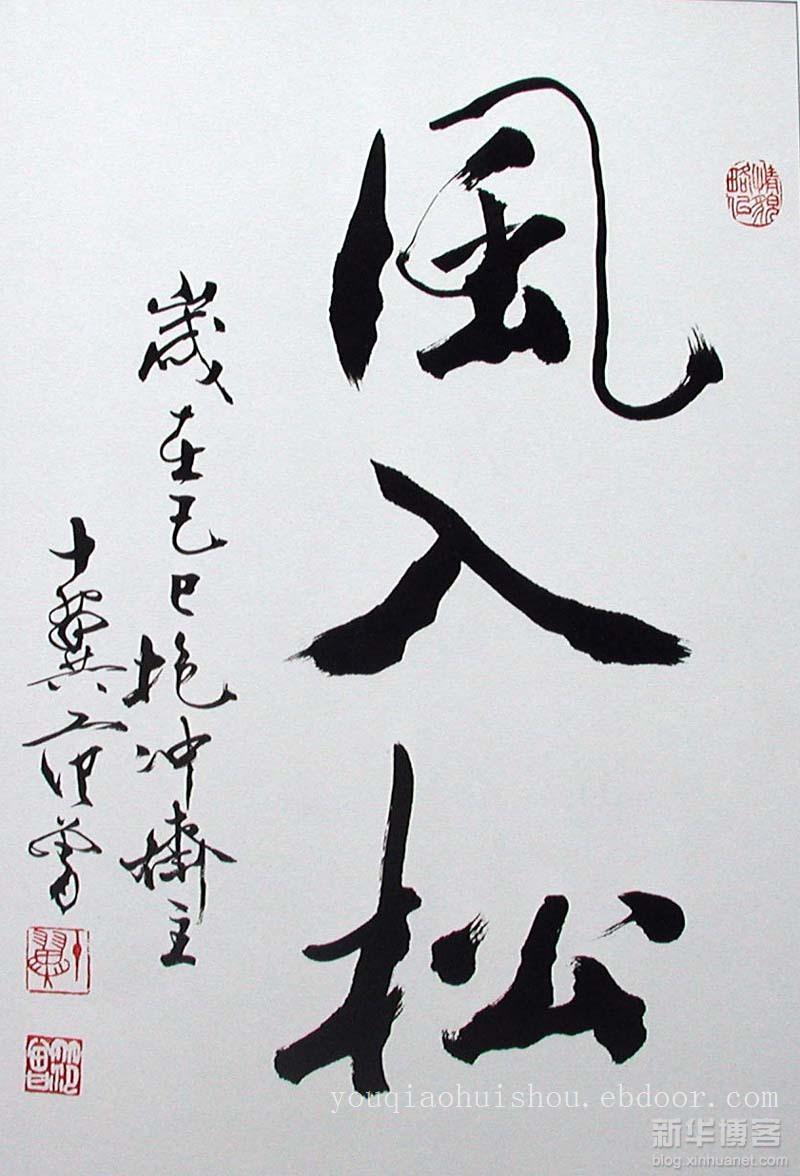 風入松
歲在己巳抱冲齋主
十翼范曾
十翼
youqiaohuishou.ebdoor.com
新华博客
blog.xinhuanet.com